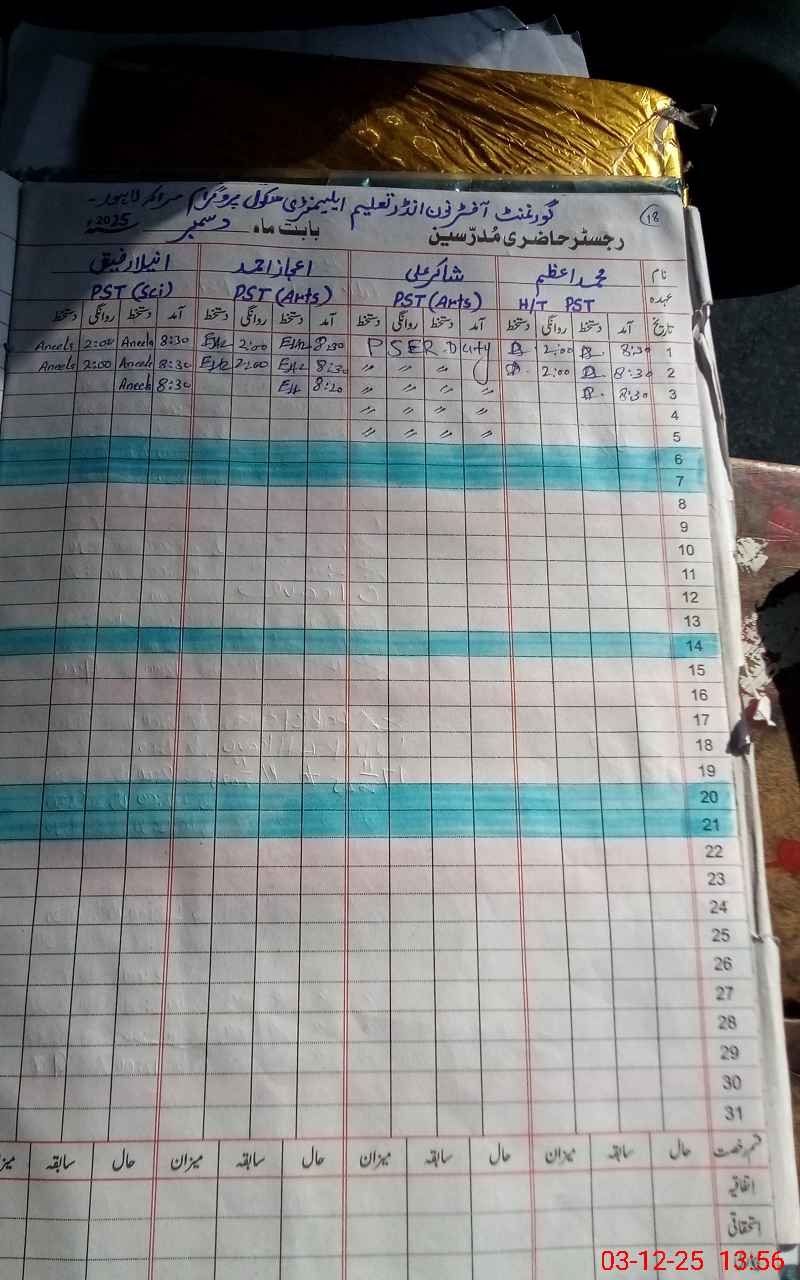 گورنمنٹ آفٹر نون انڈر تعلیم ایلیمنٹری سکول پروگرام
18
رجسٹر حاضری مُدرّسین بابت ماہ دسمبر سنہ 2025ء
نام محمد اعظم شاکر علی اعجاز احمد انیلا رفیق
عہدہ H/T PST PST (Arts) PST (Arts) PST (Sci)
تاریخ آمد دستخط روانگی دستخط آمد دستخط روانگی دستخط آمد دستخط روانگی دستخط آمد دستخط روانگی دستخط
1 8:30 2:00 PSER Duty 8:30 2:00 8:30 Aneela 2:00 Aneela
2 8:30 2:00 〃 〃 〃 〃 8:30 2:00 8:30 Aneela 2:00 Aneela
3 8:30 〃 〃 〃 〃 8:20 8:30 Aneela
4 〃 〃 〃 〃
5 〃 〃 〃 〃
6
7
8
9
10
11
12
13
14
15
16
17
18
19
20
21
22
23
24
25
26
27
28
29
30
31
قسم رخصت حال سابقہ میزان حال سابقہ میزان حال سابقہ میزان حال سابقہ میزان
اتفاقیہ
استحقاقی
03-12-25 13:56